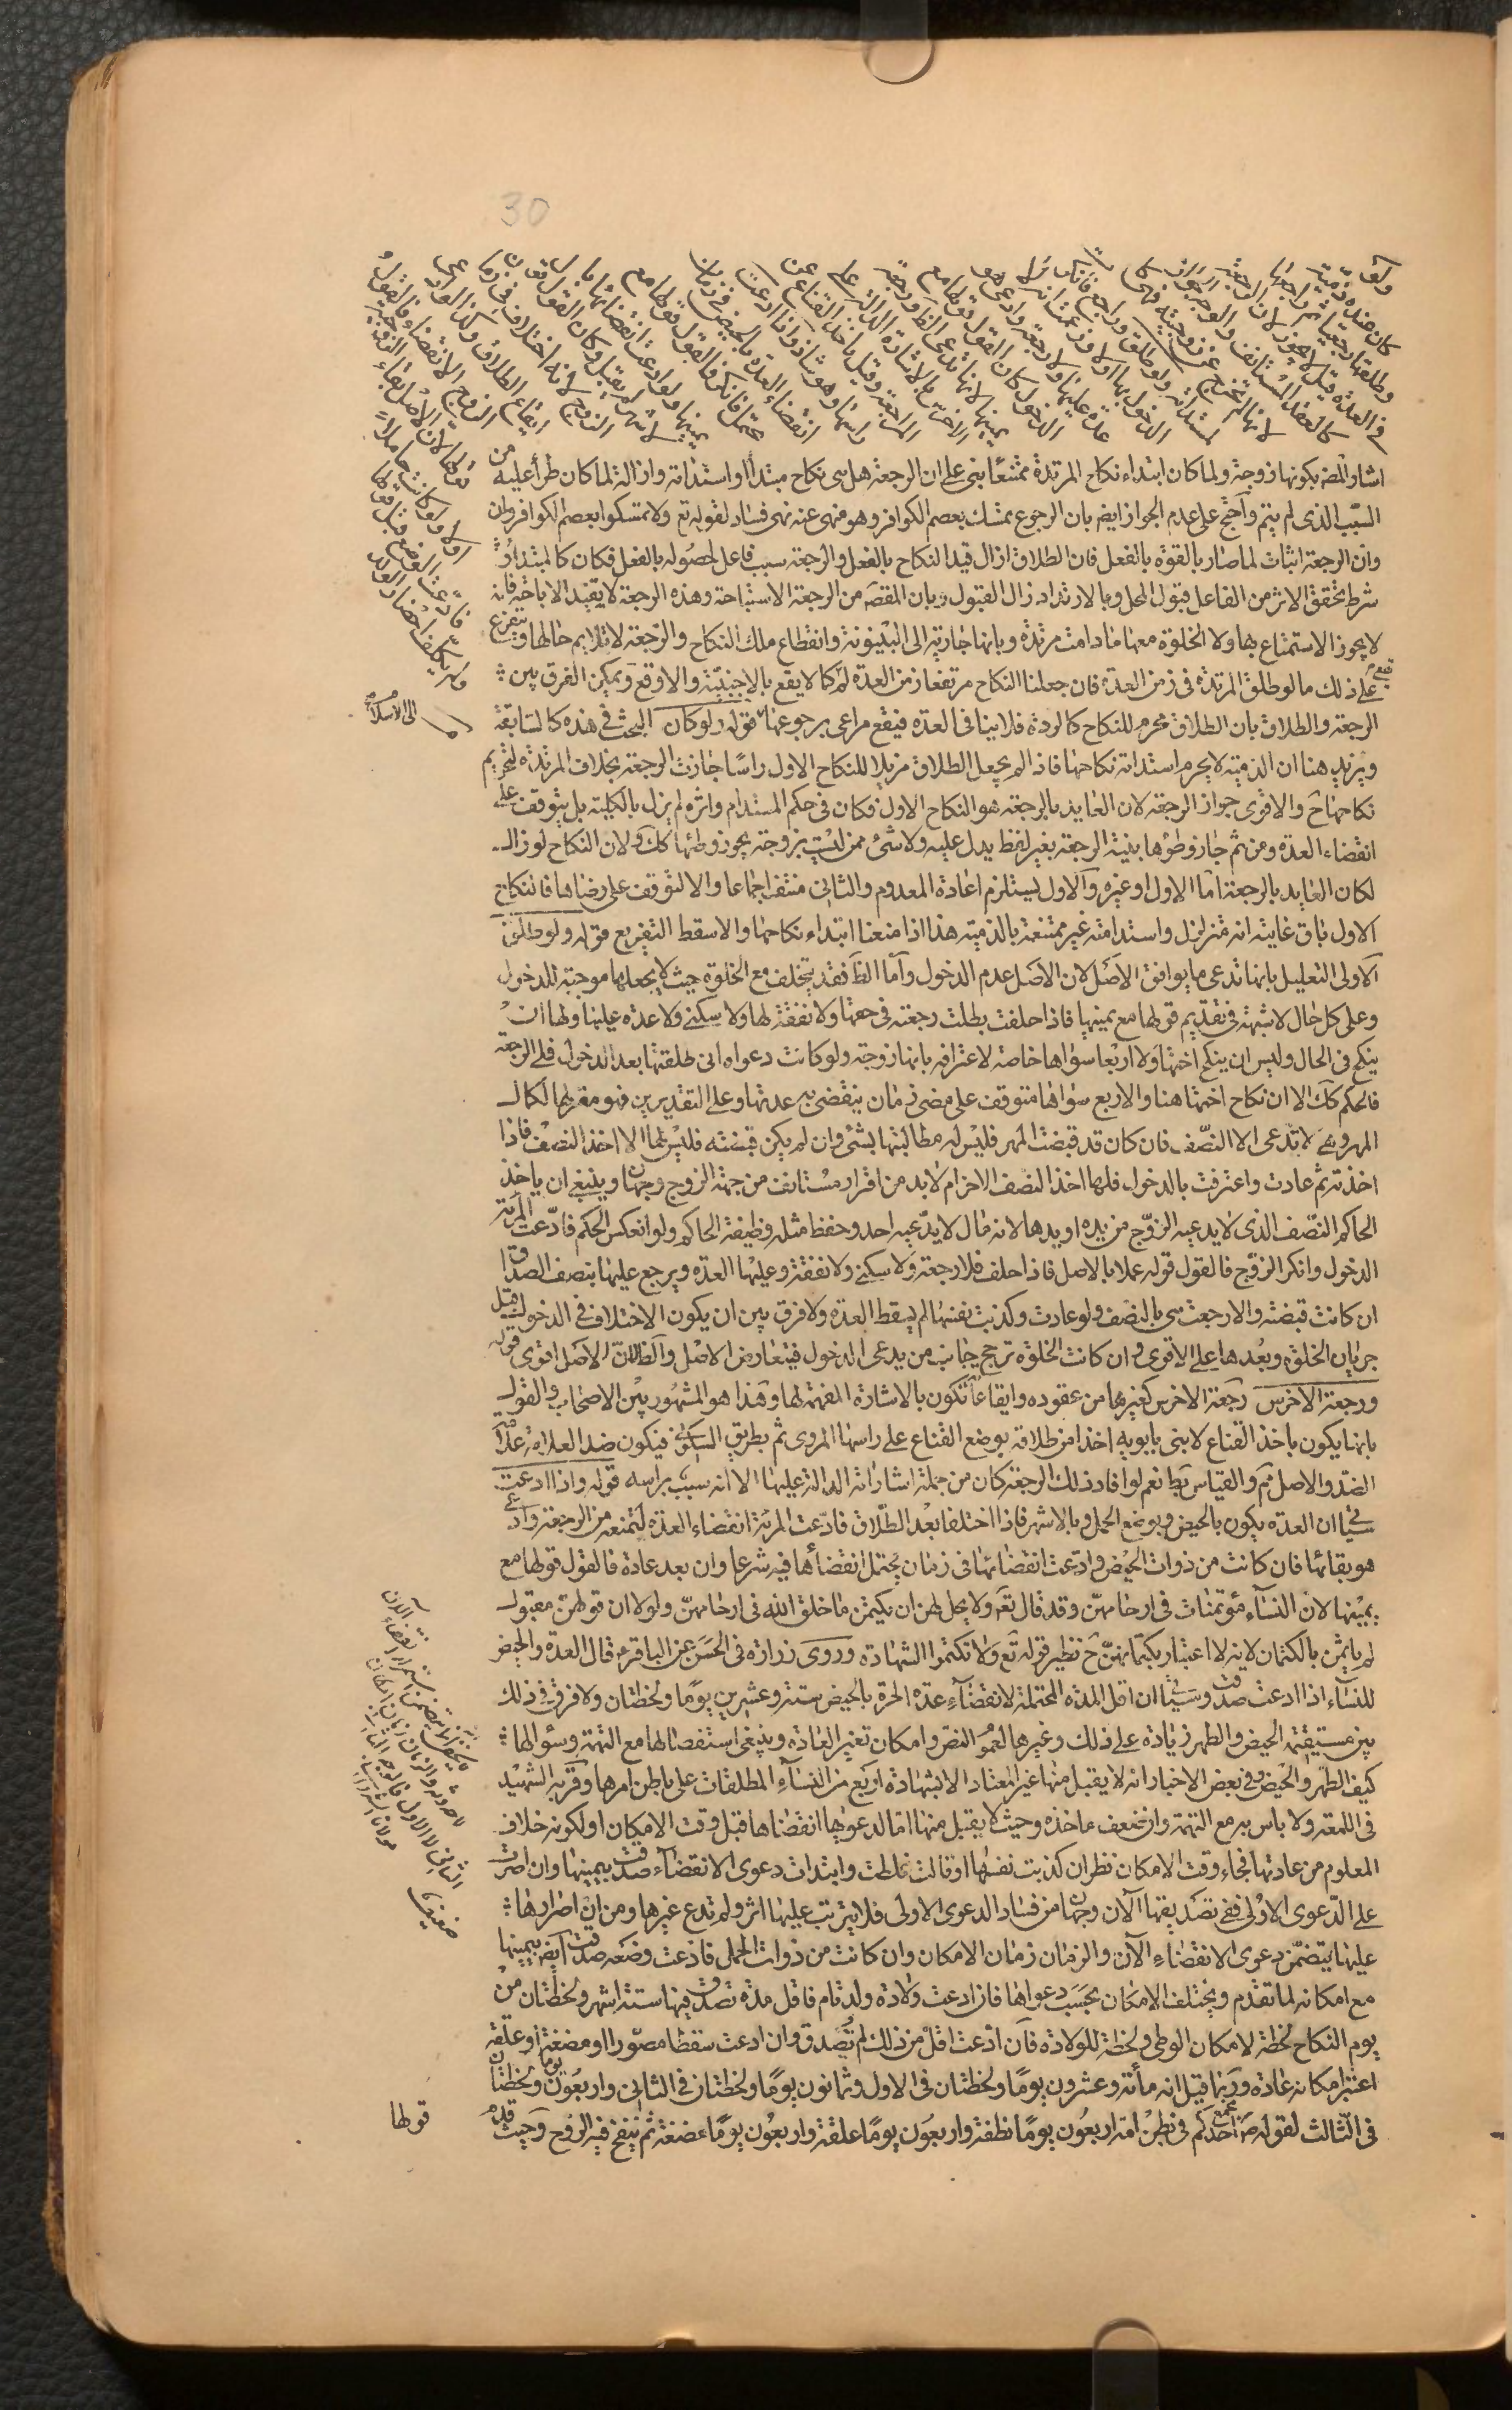 30
ولو
كان عنده ذمية
وطلقها رجعيا ثم راجعها
في العدة قيل لا يجوز لان الرجعة
كالعقد المستأنف والوجه الجواز
لانها لم تخرج عن زوجيته فهي كا
لمستدامة ولو طلق وراجع فانكرت
الدخول بها اولا وزعمت انه لا
عدة عليها ولا رجعة وادعى هو
الدخول كان القول قولها مع
يمينها لانها تدعي الظاهر ورجعة
الاخرس بالاشارة الدالة على
المراجعة وقيل باخذ القناع عن
راسها وهو شاذ واذا ادعت
انقضاء العدة بالحيض في زمان
محتمل فانكر فالقول قولها مع
يمينها ولو ادعت انقضائها بالا
شهر لم يقبل وكان القول قول
الزوج لانه اختلاف في زمان
ايقاع الطلاق وكذا لو ادعى
الزوج الانقضاء فالقول
قولها لان الاصل بقاء الزوجية
اولا ولو كانت حاملا
فادعت الوضع قبل قولها
ولم يكلف احضار الولد
اشار المصه بكونها زوجة ولما كان ابتداء نكاح المرتدة ممتنعا بنى على ان الرجعة هل هي نكاح مبتدأ او استدامة وازالة لما كان طرأ عليه من
السبب الذي لم يتم واحتج على عدم الجواز ايضم بان الرجوع تمسك بعصم الكوافر وهو منهى عنه نهى فساد لقوله تع ولا تمسكوا بعصم الكوافر وان
وان الرجعة اثبات لما صار بالقوة بالفعل فان الطلاق ازال قيد النكاح بالفعل والرجعة سبب فاعل لحصوله بالفعل فكان كالمبتدأ و
شرط تحقق الاثر من الفاعل قبول المحل وبالارتداد زال القبول وبان المقصه من الرجعة الاستباحة وهذه الرجعة لا تفيد الاباحة فانه
لا يجوز الاستمتاع بها ولا الخلوة معها ما دامت مرتدة وبانها جارية الى البينونة وانقطاع ملك النكاح والرجعة لا تلايم حالها ويتفرع
على ذلك ما لو طلق المرتدة في زمن العدة فان جعلنا النكاح مرتفعا زمن العدة لم يقع كما لا يقع بالاجنبية والا وقع ويمكن الفرق بين
الرجعة والطلاق بان الطلاق محرم للنكاح كالردة فلا ينافي العدة فيقع مراعى برجوعها الى الاسلام قوله ولو كان البحث في هذه كالسابقة
ويزيد هنا ان الذمية لا يحرم استدامة نكاحها فاذا لم يجعل الطلاق مزيلا للنكاح الاول راسا جازت الرجعة بخلاف المرتدة لتحريم
نكاحها ح والاقوى جواز الرجعة لان العايد بالرجعة هو النكاح الاول فكان في حكم المستدام واثره لم يزل بالكلية بل يتوقف على
انقضاء العدة ومن ثم جاز وطؤها بنية الرجعة بغير لفظ يدل عليه ولا شئ ممن ليست بزوجة يجوز وطئها كك ولان النكاح لو زال
لكان العايد بالرجعة اما الاول او غيره والاول يستلزم اعادة المعدوم والثاني منتف اجماعا والا لتوقف على رضاها فالنكاح
الاول باق غايته انه متزلزل واستدامته غير ممتنعة بالذمية هذا اذا منعنا ابتداء نكاحها والا سقط التفريع قوله ولو طلق
الاولى التعليل بانها تدعى ما يوافق الاصل لان الاصل عدم الدخول واما الظا فقد يتخلف مع الخلوة حيث لا يجعلها موجبة للدخول
وعلى كل حال لا شبهة في تقديم قولها مع يمينها فاذا حلفت بطلت رجعته في حقها ولا نفقة لها ولا سكنى ولا عدة عليها ولها ان
ينكح في الحال وليس ان ينكح اختها ولا اربعا سواها خاصة لاعترافه بانها زوجة ولو كانت دعواه انى طلقتها بعد الدخول فلي الرجعة
فالحكم كك الا ان نكاح اختها هنا والاربع سواها متوقف على مضي زمان ينقضي به عدتها وعلى التقديرين فهو مقر لها بكمال
المهر وهى لا تدعى الا النصف فان كان قد قبضت المهر فليس له مطالبتها بشئ وان لم يكن قبضته فليس لها الا اخذ النصف فاذا
اخذته ثم عادت واعترفت بالدخول فلها اخذ النصف الاخر ام لا بد من اقرار مستانف من جهة الزوج وجهان وينبغي ان ياخذ
الحاكم النصف الذي لا يدعيه الزوج من يده او يدها لانه مال لا يدعيه احد وحفظ مثله وظيفة الحاكم ولو انعكس الحكم فادعت المرئة
الدخول وانكر الزوج فالقول قوله عملا بالاصل فاذا حلف فلا رجعة ولا سكنى ولا نفقة وعليها العدة ويرجع عليها بنصف الصداق
ان كانت قبضته والا رجعت هي بالنصف ولو عادت وكذبت نفسها لم يسقط العدة ولا فرق بين ان يكون الاختلاف في الدخول قبل
جريان الخلوة وبعدها على الاقوى وان كانت الخلوة ترجح جانب من يدعى الدخول فيتعارض الاصل والظا لان الاصل اقوى قوله
ورجعة الاخرس رجعة الاخرس كغيرها من عقوده وايقاعاته تكون بالاشارة المفهمة لها وهذا هو المشهور بين الاصحاب والقول
بانها يكون باخذ القناع لابنى بابويه اخذا من طلاقه بوضع القناع على راسها المروى ثم بطريق السكونى فيكون ضد العلامة علامة
الضد والاصل ثم والقياس بط نعم لو افاد ذلك الرجعة كان من جملة اشاراته الدالة عليها الا انه سبب براسه قوله واذا ادعت
سياتي ان العدة يكون بالحيض وبوضع الحمل وبالاشهر فاذا اختلفا بعد الطلاق فادعت المرئة انقضاء العدة لتمنعه من الرجعة وادعى
هو بقائها فان كانت من ذوات الحيض وادعت انقضائها في زمان يحتمل انقضائها فيه شرعا وان بعد عادة فالقول قولها مع
يمينها لان النساء مؤتمنات في ارحامهن وقد قال تع ولا يحل لهن ان يكتمن ما خلق الله في ارحامهن ولولا ان قولهن مقبول
لم ياثمن بالكتمان لانه لا اعتبار بكتمانهن ح نظير قوله تع ولا تكتموا الشهادة وروى زرارة في الحسن عن الباقر ع قال العدة والحيض
للنساء اذا ادعت صدقت وسياتي ان اقل المدة المحتملة لانقضاء عدة الحرة بالحيض ستة وعشرين يوما ولحظتان ولا فرق في ذلك
بين مستقيمة الحيض والطهر زيادة على ذلك وغيرها لعموم النص وامكان تغير العادة وينبغي استفصالها مع التهمة وسؤالها
كيف الطهر والحيض وفي بعض الاخبار انه لا يقبل منها غير المعتاد الا بشهادة اربع من النساء المطلقات على باطن امرها وقربه الشهيد
في اللمعة ولا باس به مع التهمة وان ضعف ماخذه وحيث لا يقبل منها اما لدعويها انقضاها قبل وقت الامكان او لكونه خلاف
المعلوم من عادتها فجاء وقت الامكان نظر ان كذبت نفسها او قالت غلطت وابتدات دعوى الانقضاء صدقت بيمينها وان اصرت
على الدعوى الاولى ففي تصديقها الآن وجهان من فساد الدعوى الاولى فلا يترتب عليها اثر ولم تدع غيرها ومن ان اصرارها
عليها يتضمن دعوى الانقضاء الآن والزمان زمان الامكان وان كانت من ذوات الحمل فادعت وضعه صدقت ايضم بيمينها
مع امكانه لما تقدم ويختلف الامكان بحسب دعواها فان ادعت ولادة ولد تام فاقل مدة تصدق فيها ستة اشهر ولحظتان من
يوم النكاح لحظة لامكان الوطى ولحظة للولادة فان ادعت اقل من ذلك لم تصدق وان ادعت سقطا مصورا او مضغة او علقة
اعتبر امكانه عادة وربما قيل انه مأئة وعشرون يوما ولحظتان في الاول وثمانون يوما ولحظتان في الثاني واربعون يوما ولحظتان
في الثالث لقوله ص يجمع احدكم في بطن امه اربعون يوما نطفة واربعون يوما علقة واربعون يوما مضغة ثم ينفخ فيه الروح وحيث قدم
قولها